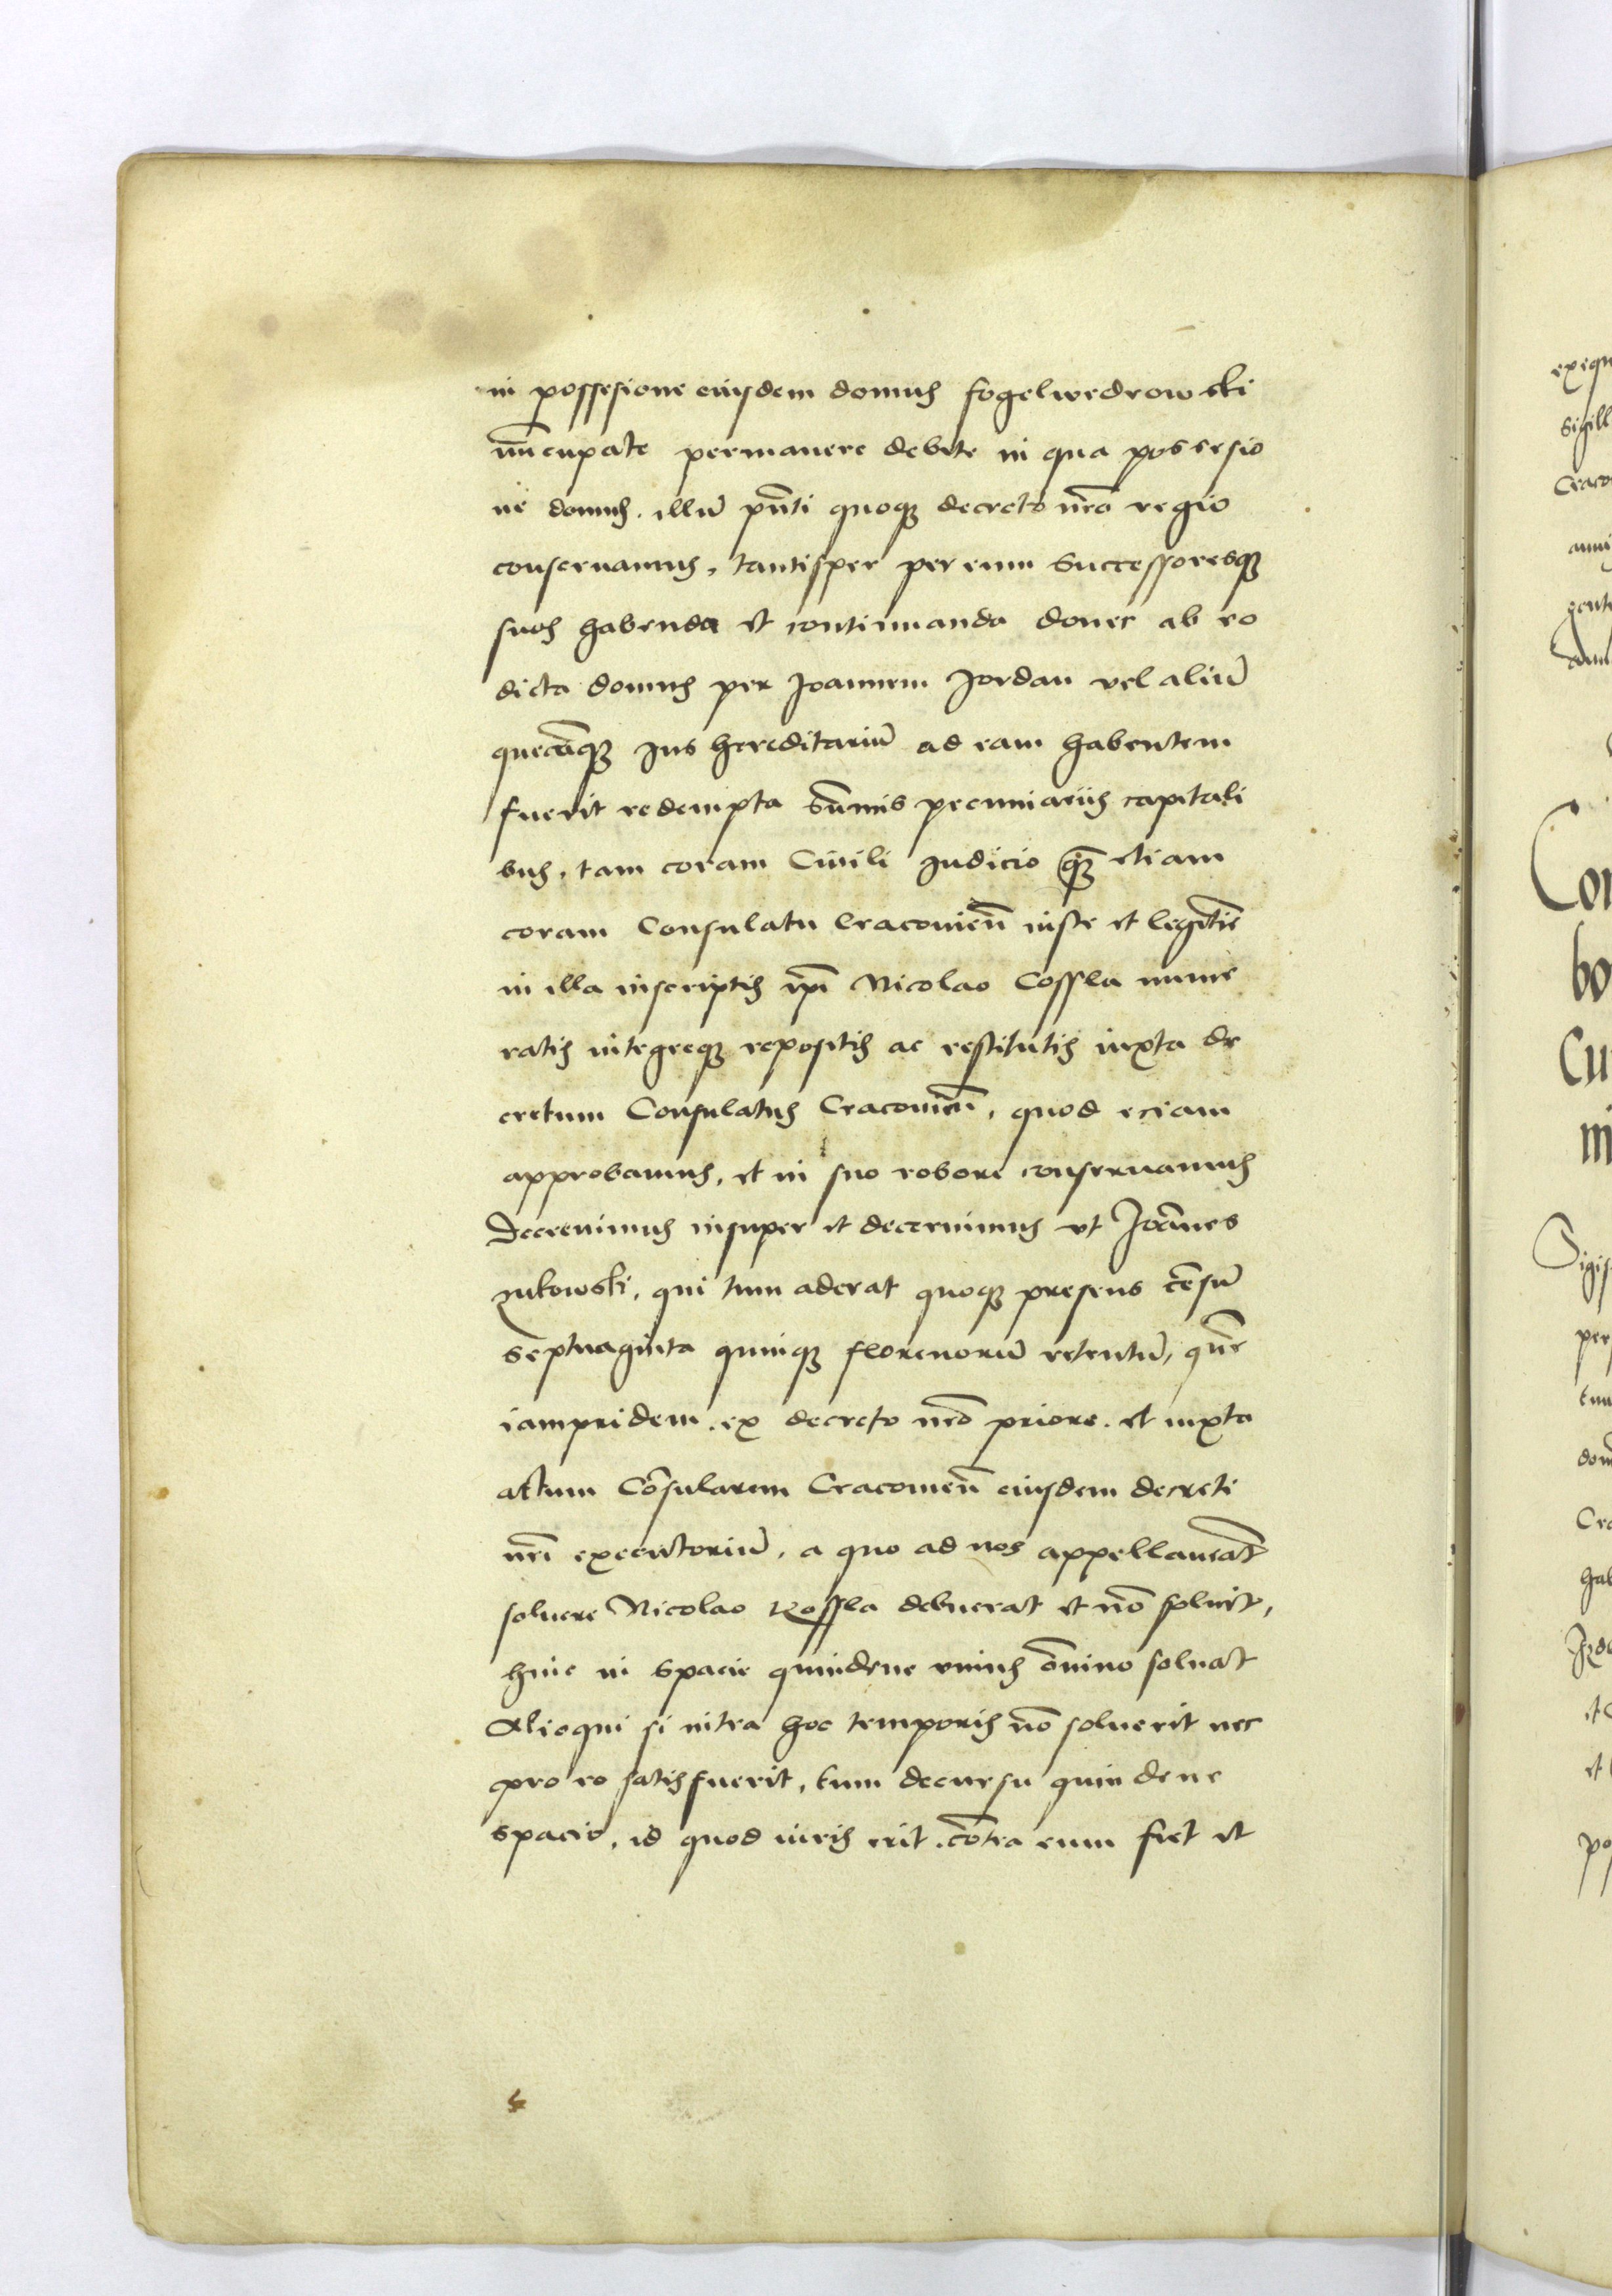 in possesione eiusdem domus fogelwedrowski
nūcupate permanere debite in qua possesio
ne domus. illū pn̄ti quoq₃ decreto nr̄o regio
conseruamus, tantisper per eum Successoresq₃
suos habenda et continuanda donec ab eo
dicta domus per Joannem Jordan vel aliū
quecūq₃ Jus hereditariū ad eam habentem
fuerit redempta sūmis pecuniariis capitali
bus, tam coram Ciuili Judicio q₃ etiam
coram Consulatu Cracouien̄ iuste et legitīe
in illa inscriptis ip̄i Nicolao Cossla nume
ratis integreq₃ repositis ac restitutis iuxta de
cretum Consulatus Cracouien̄, quod eciam
approbamus, et in suo robore conseruamus
Decreuimus insuper et decernimus vt Joānes
zukowski, qui tum aderat quoq₃ presens cēsū
septuaginta quinq₃ florenorū retentū, quē
iampridem. ex decreto nr̄o priore. et iuxta
actum Cōsularem Cracouien̄ eiusdem decreti
nr̄i executoriū, a quo ad nos appellauerāt
soluere Nicolao Kossla debuerat et nō soluit,
huic in spacie quindene vnius ōnino soluat
Alioqui si intra hoc temporis nō soluerit nec
pro eo satisfuerit, tum decursu quindene
spacio, id quod iuris erit. cōtra eum fiet et
exequ
sigill
Craco
anni
gente
Con
bo
Cu
ni
Sigis
per
tun
dom
Cra
hab
et
et
pos